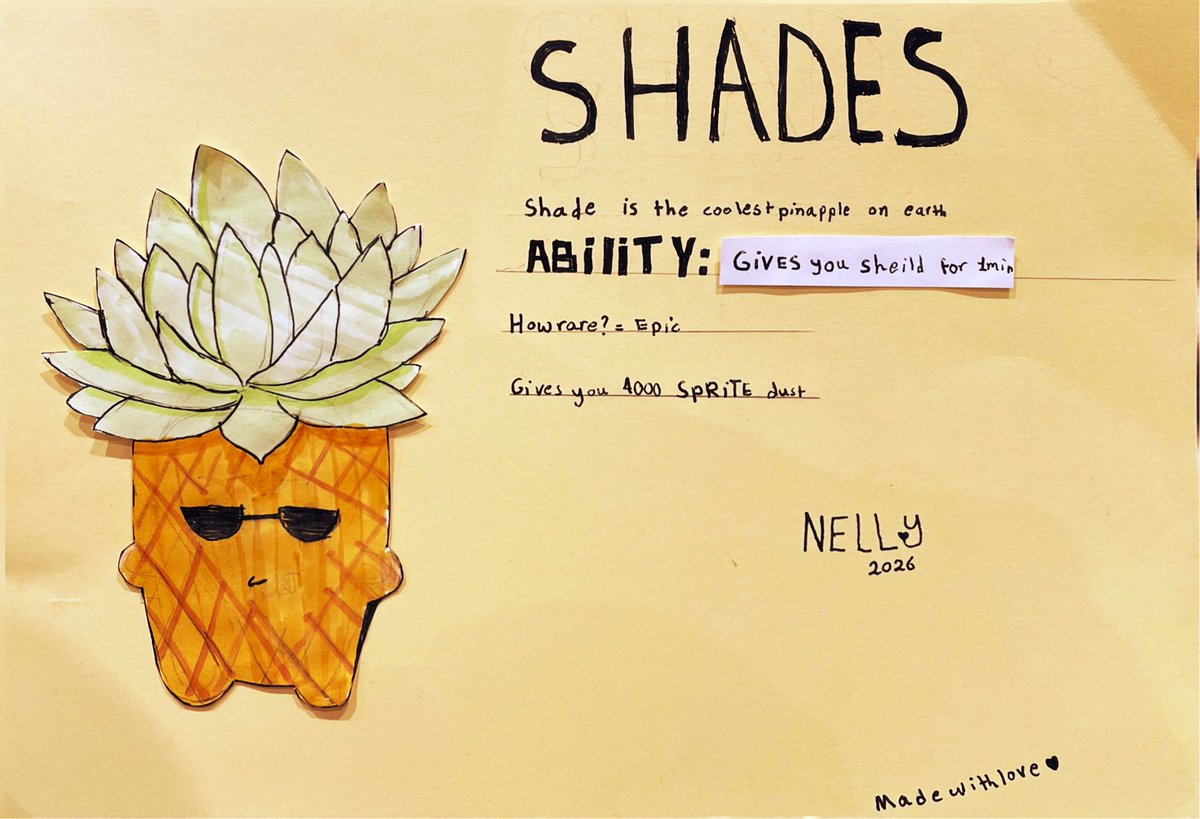 SHADES
Shade is the coolest pinapple on earth
ABiliTY: GiVES you sheild for 1min
How rare? = Epic
Gives you 4000 SpRiTE dust
NELLY
2026
Made with love